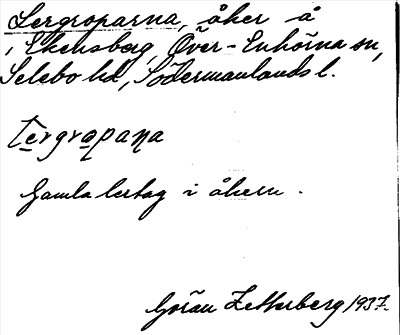 Lergroparna, åker å
i Ekensberg, Över-Enhörna sn,
Selebo hd, Södermanlands l.
Lergropaṇa
Gamla lertag i åkern.
Göran Zetterberg 1937.